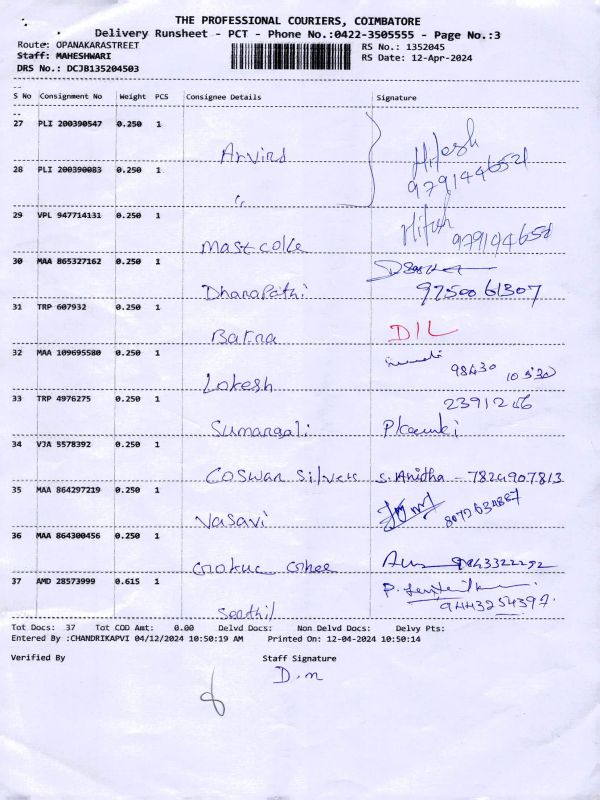 THE PROFESSIONAL COURIERS, COIMBATORE
Delivery Runsheet - PCT - Phone No.:0422-3505555 - Page No.:3
Route: OPANAKARASTREET RS No.: 1352045
Staff: MAHESHWARI RS Date: 12-Apr-2024
DRS No.: DCJB135204503
S No Consignment No Weight PCS Consignee Details Signature
27 PLI 200390547 0.250 1
Arvind Hitesh
28 PLI 200390083 0.250 1 9791446521
"
29 VPL 947714131 0.250 1 Hitesh
Mast coke
30 MAA 865327162 0.250 1
Dhanapathi 9750061307
31 TRP 607932 0.250 1
D/L
32 MAA 109695580 0.250 1
98430 10530
Lokesh
33 TRP 4976275 0.250 1 2391206
Sumangali
34 VJA 5578392 0.250 1
Coswan silvers S. Anidha - 7824907813
35 MAA 864297219 0.250 1
Vasavi 8072634887
36 MAA 864300456 0.250 1
37 AMD 28573999 0.615 1
Senthil 9443254397.
Tot Docs: 37 Tot COD Amt: 0.00 Delvd Docs: Non Delvd Docs: Delvy Pts:
Entered By :CHANDRIKAPVI 04/12/2024 10:50:19 AM Printed On: 12-04-2024 10:50:14
Verified By Staff Signature
D.n